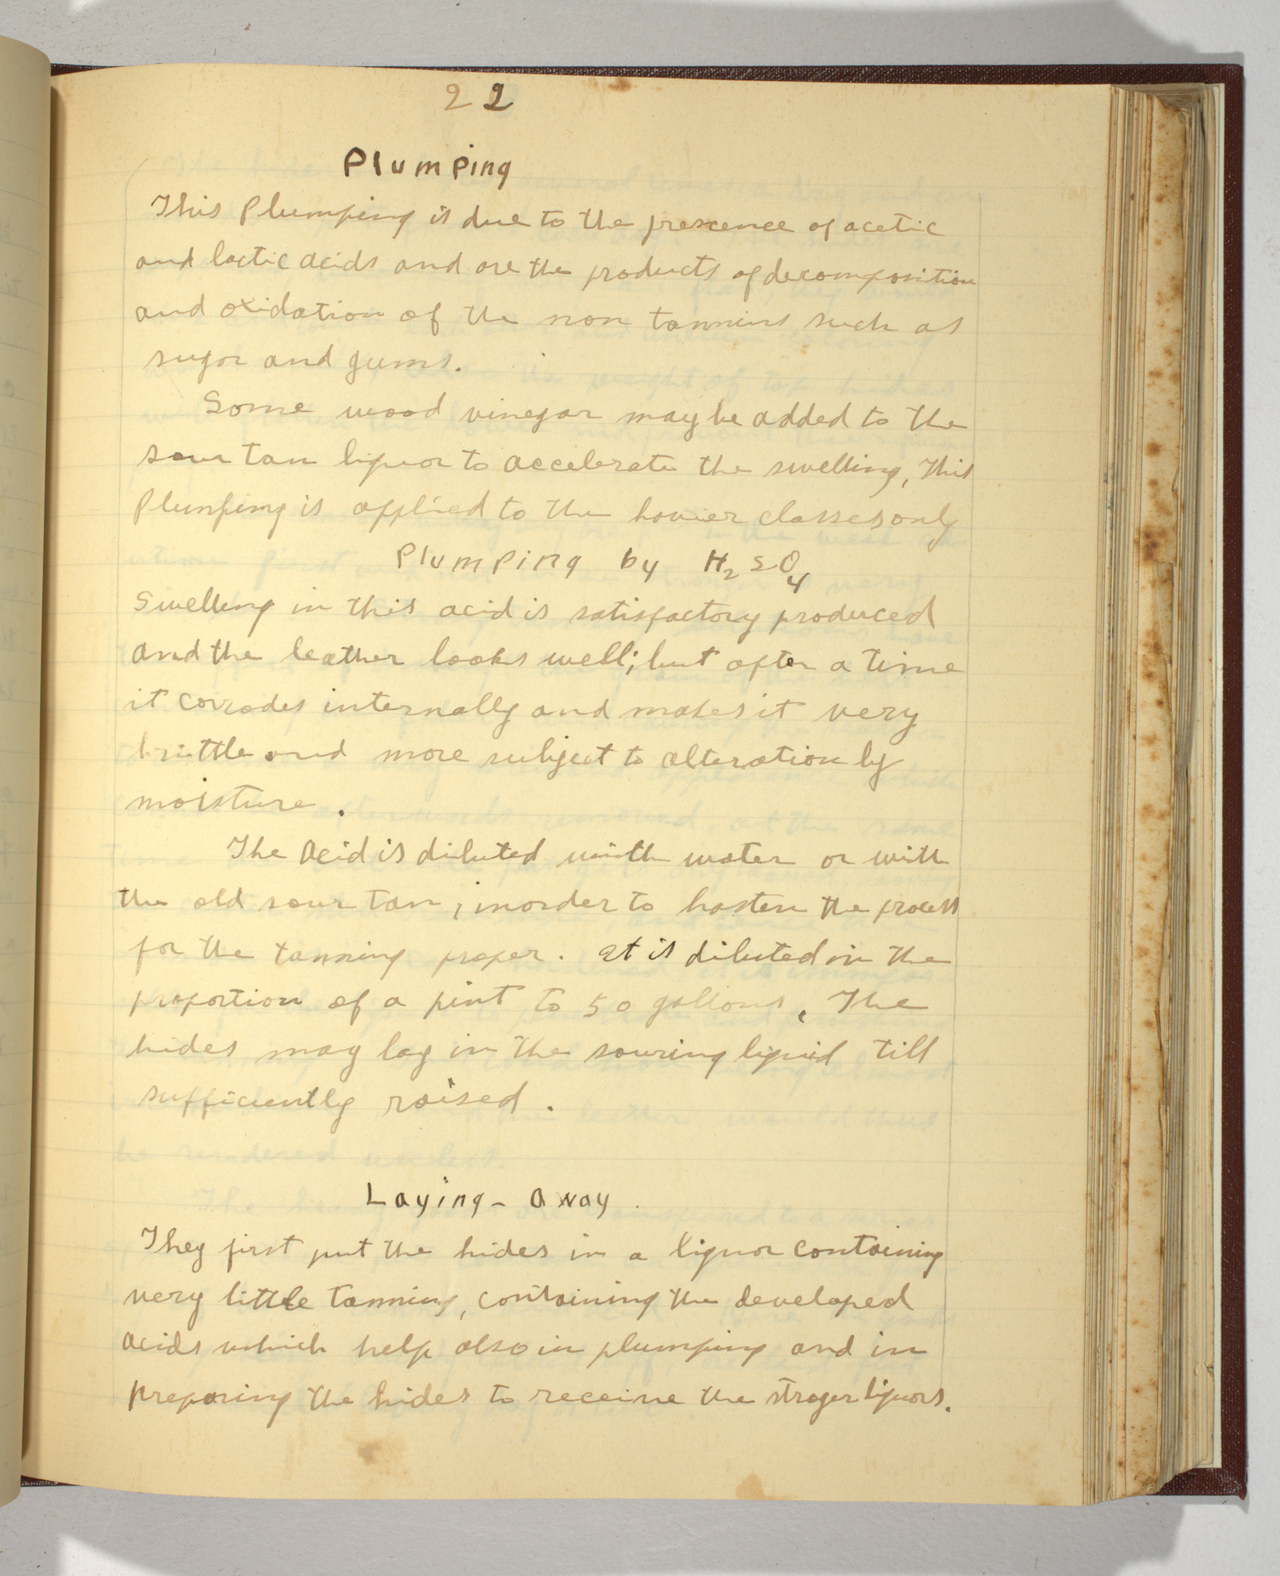 22
Plumping
This Plumping is due to the prescence of acetic
and lactic acids and are the products of decomposition
and oxidation of the non tannins such as
sugar and gums.
Some wood vinegar may be added to the
sour tan liquor to accelerate the swelling, This
Plumping is applied to the havier classes only
Plumping by H2SO4
Swelling in this acid is satisfactory produced
and the leather looks well; but after a time
it corrodes internally and makes it very
brittle and more subject to alteration by
moisture.
The Acid is diluted with water or with
the old sour tan; inorder to hasten the process
for the tanning proper. It is diluted in the
proportion of a pint to 50 gallons. The
hides may lay in the souring liquid till
sufficiently raised.
Laying-away.
They first put the hides in a liquor containing
very little tanning, containing the developed
acids which help also in plumping and in
preparing the hides to receive the stroger liquors.